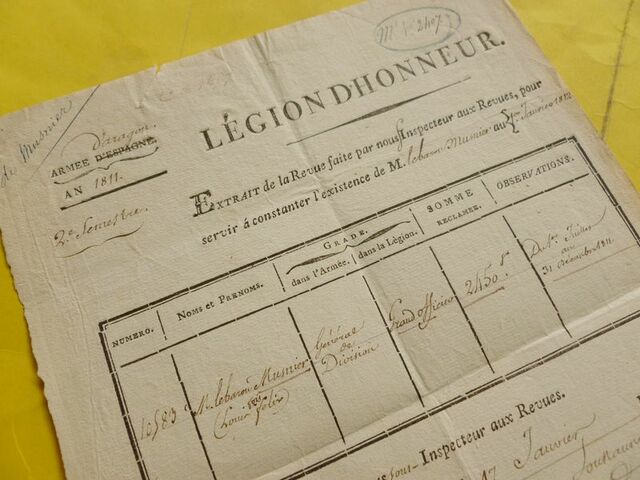 Mle 2407
de Musnier
LÉGION D'HONNEUR.
d'aragon
ARMÉE D'ESPAGNE.
AN 1811.
2e Semestre.
EXTRAIT de la Revue faite par nous Inspecteur aux Revues, pour
servir à constanter l'existence de M. le baron Musnier au 1er Janvier 1812
NUMERO.
NOMS ET PRENOMS.
GRADE.
dans l'Armée.
dans la Légion.
SOMME
RECLAMÉE.
OBSERVATIONS.
10583
Mr le baron Musnier
(Louis félix)
Général
de
Division
Grand officier
2450 f
Du 1er Juillet
au
31 décembre 1811.
sous-Inspecteur aux Revues.
17 Janvier